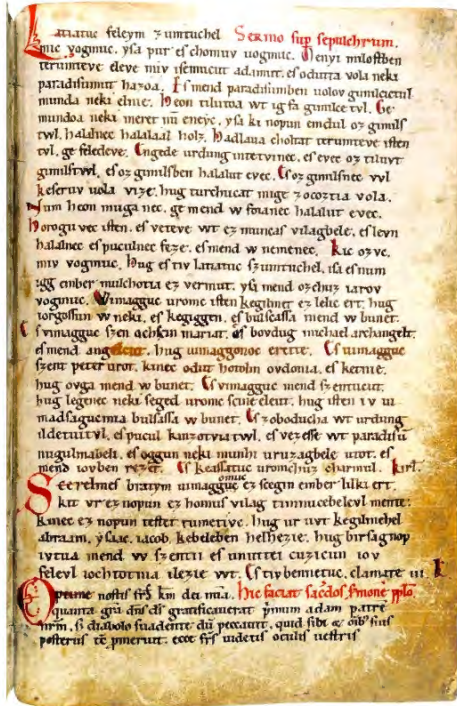 Latiatuc feleym zumtuchel Sermo sup sepulchrum.
mic vogmuc. yſa pur eſ chomuv uogmuc. Menyi miloſtben
terumteve eleve miv iſemucut adamut. eſ odutta vola neki
paradiſumut hazoa. Eſ mend paradiſumben uolov gimilcictul
munda neki elnie. Heon tilutoa wt ig fa gimilce tvl. Ge
mundoa neki meret nũ eneyc. yſa ki nopun emdul oz gimilſ
twl. halalnec halalaal holz. Hadlaua choltat terumteve iſten
tvl. ge feledeve. Engede urdung intetvinec. eſ evec oz tiluvt
gimilſtwl. eſ oz gimilſben halalut evec. Eſ oz gimilſnec vvl
keſeruv uola vize. hug turchucat mige zocoztia vola.
Num heon muga nec. ge mend w foianec halalut evec.
Horogu vec iſten. eſ veteve wt ez muncaſ vilagbele. eſ levn
halalnec eſ puculnec feze. eſ mend w nemenec. Kic ozvc.
miv vogmuc. Hug eſ tiv latiatuc szumtuchel. iſa eſ num
igg ember mulchotia ez vermut. yſa mend ozchuz iarov
vogmuc. Wimagguc uromc iſten kegilmet ez lelic ert. hug
iorgoſſun w neki. eſ kegiggen. eſ bulſcaſſa mend w bunet.
Eſ vimagguc szen achſcin mariat. eſ bovdug michael archangelt.
eſ mend angelcut. hug uimaggonoc erette. Eſ uimagguc
szent peter urot. kinec odut hotolm ovdonia. eſ ketnie.
hug ovga mend w bunet. Eſ vimagguc mend szentucut.
hug legenec neki seged uromc scine eleut. hug iſten iv ui
madſagucmia bulſaſſa w bunet. Eſ zoboducha wt urdung
ildetuitvl. eſ pucul kinzotvia twl. eſ vezeſſe wt paradiſu
nugulmabeli. eſ oggun neki munhi uruzagbele utot. eſ
mend iovben rezet. Eſ keaſſatuc uromchuz charmul. Kirl.
Scerelmes bratym uimagguc omuc ez scegin ember lilki ert.
kit vr ez nopun ez homus vilag timnucebelevl mente.
kinec ez nopun teſtet tumetivc. hug ur uvt kegilmehel
abraam. yſaac. iacob. kebeleben helhezie. hug birſagnop
ivtva mend w szentii eſ unuttei cuzicun iov
felevl iochtotnia ilezie wt. Eſ tivbennetuc. clamate iii. K
Oremꝰ noſtis frs̄ km̄ det mia. Hic faciat sac̄dos s̄mone pp̄lo
quanta grā dn̄s ds̄ gratificauerat p̄mum adam patrē
nr̄m, si diabolo ſuadente dū peccauit. quid ſibi & oīb' ſuis
poſteris
ecce frs̄ uidetis oculis ueſtris